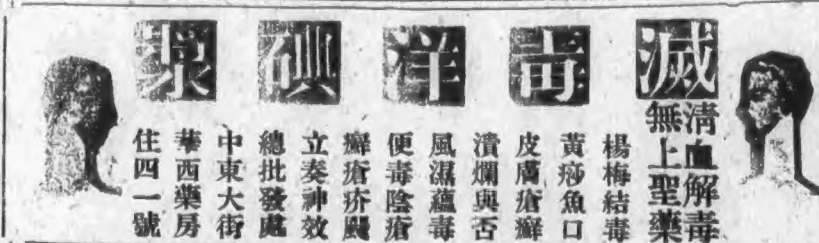 滅毒洋碘
清血解毒
無上聖藥
楊梅結毒
黃痧魚口
皮膚瘡癬
潰爛與否
風濕蘊毒
便毒陰瘡
癬瘡疥
立奏神效
總批發處
中東大街
華西藥房
住四一號